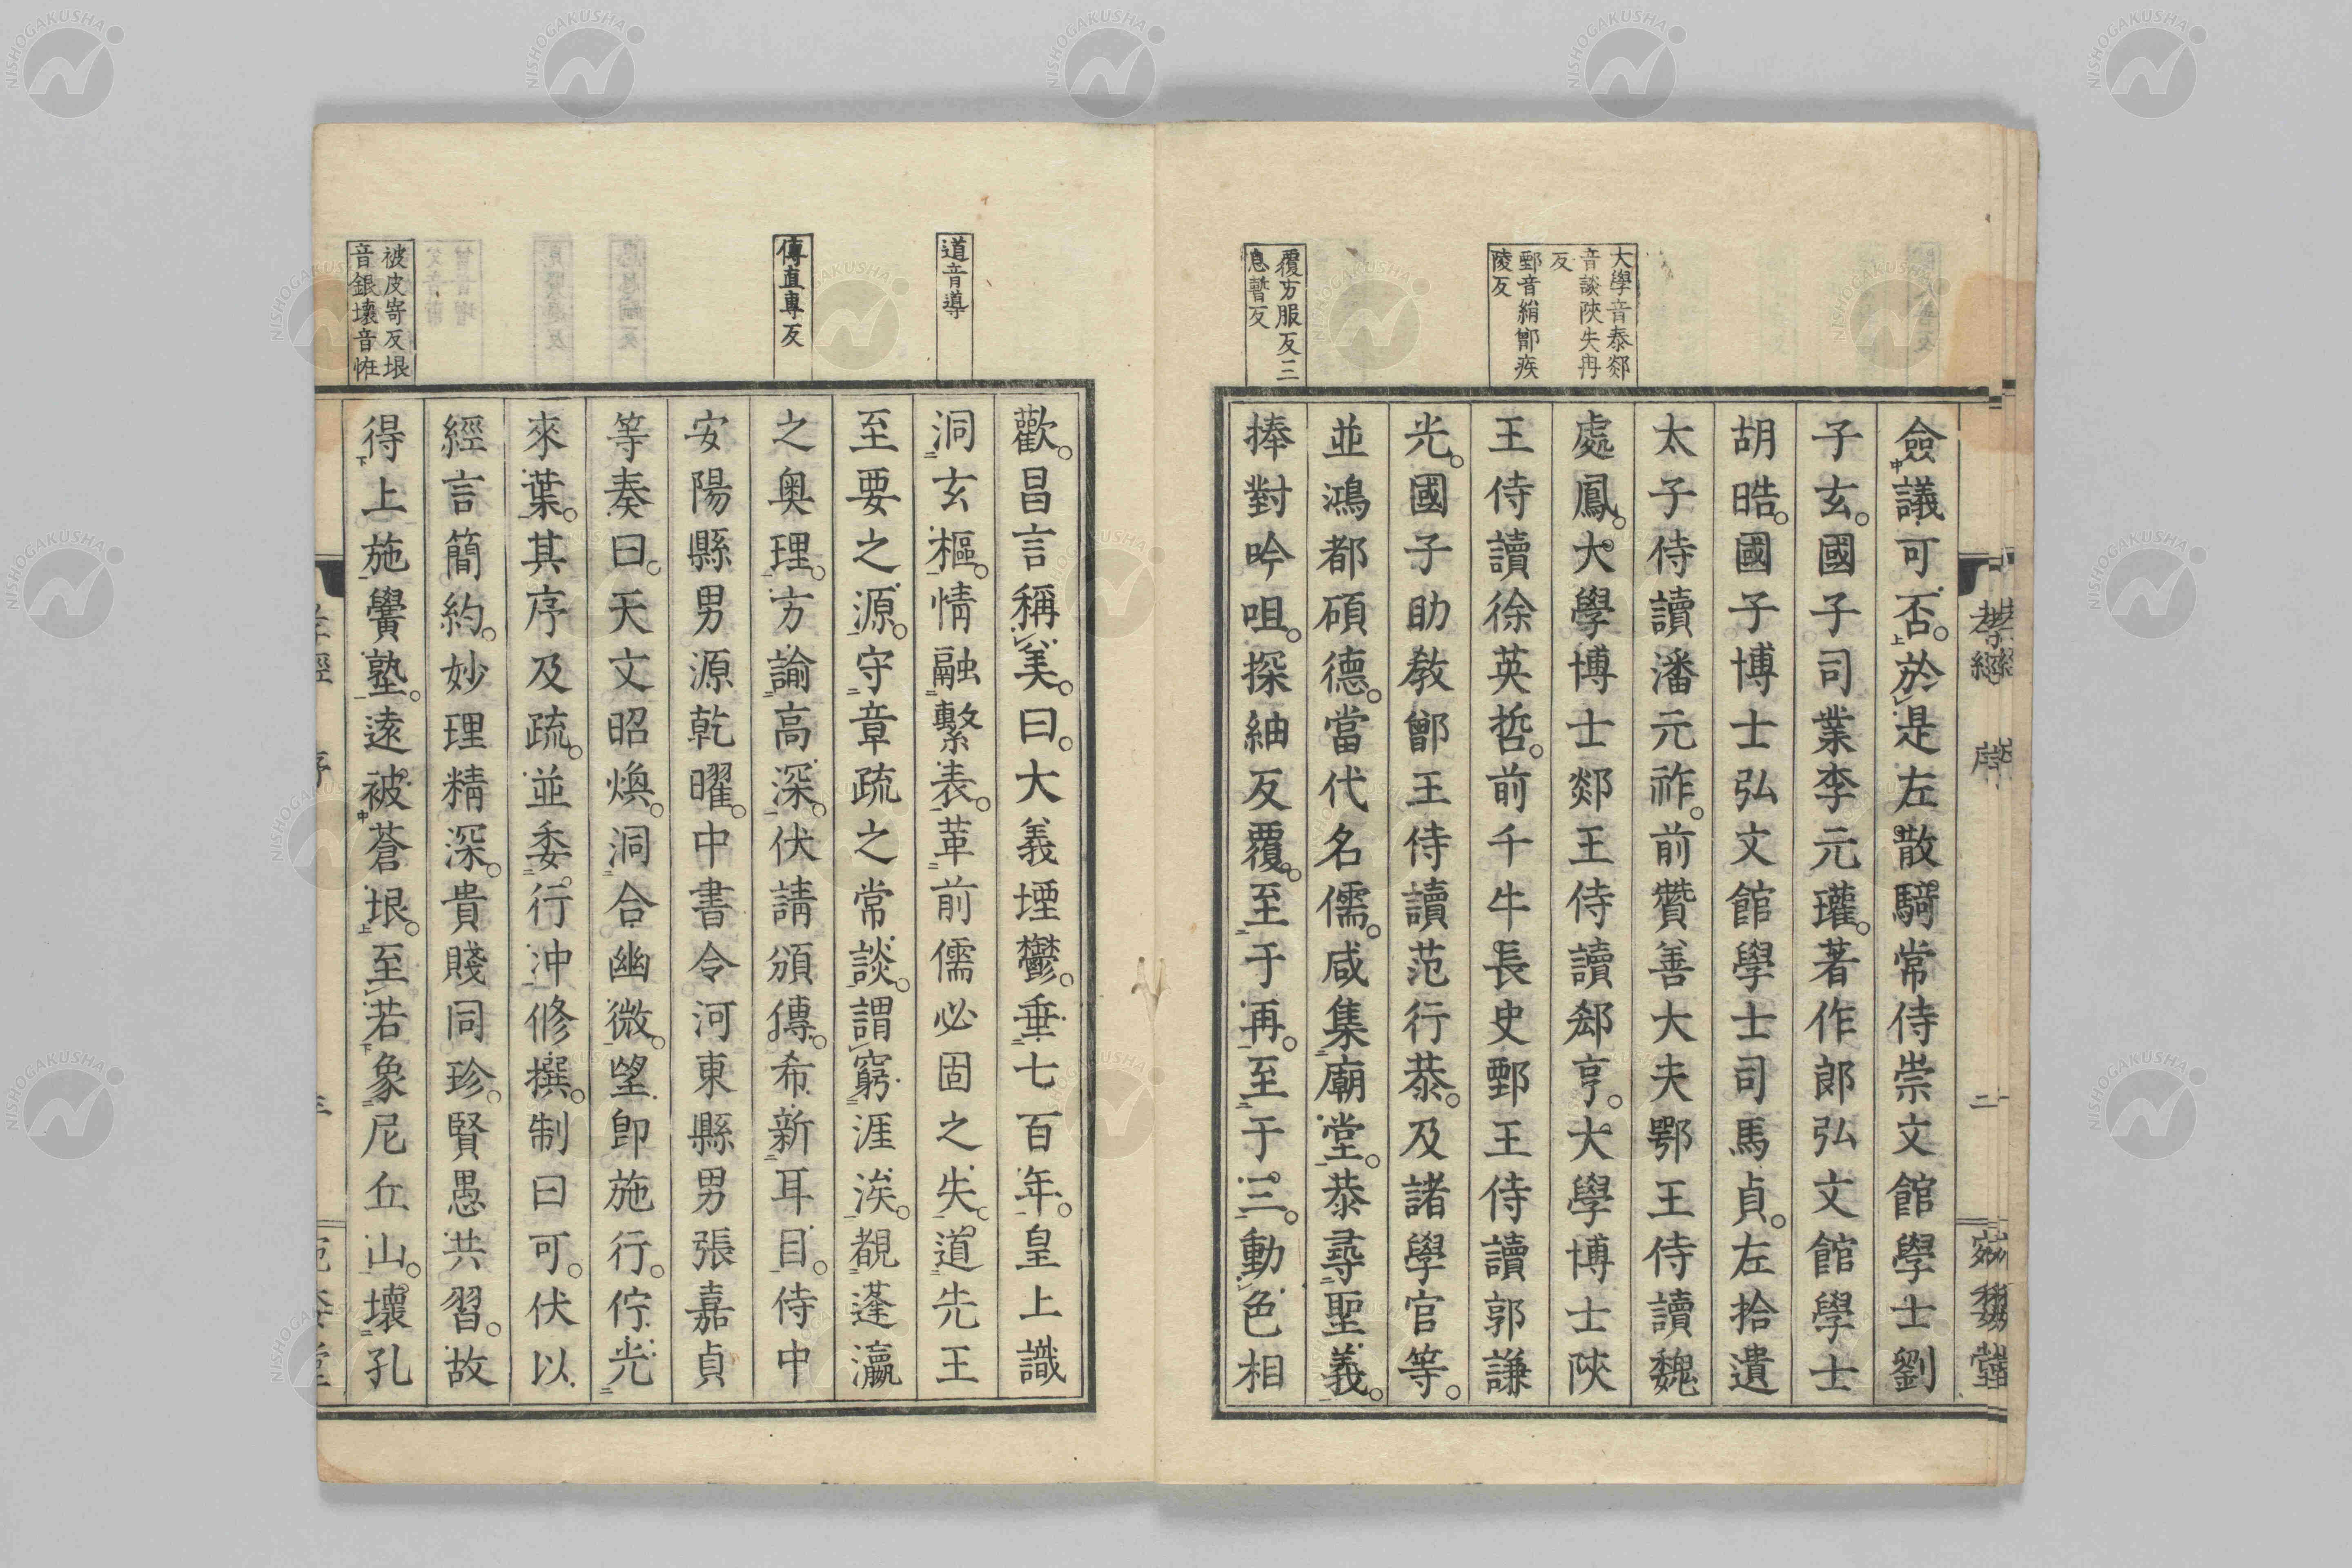 大學音泰郯
音談陝失冉
反
鄄音絹鄫疾
陵反
覆方服反三
息暫反
孝經
序
二
僉議可否。於是左散騎常侍崇文館學士劉
子玄。國子司業李元瓘。著作郎弘文館學士
胡晧。國子博士弘文館學士司馬貞。左拾遺
太子侍讀潘元祚。前贊善大夫鄂王侍讀魏
處鳳。大學博士郯王侍讀郄亨。大學博士陝
王侍讀徐英哲。前千牛長史鄄王侍讀郭謙
光。國子助敎鄫王侍讀范行恭。及諸學官等。
並鴻都碩德。當代名儒。咸集廟堂。恭尋聖義。
捧對吟咀。探紬反覆。至于再。至于三。動色相
道音導
傳直專反
被皮寄反垠
音銀壞音恠
歡。昌言稱美。曰。大義堙鬱。垂七百年。皇上識
洞玄樞。情融繫表。革前儒必固之失。道先王
至要之源。守章疏之常談。謂窮涯涘。覩蓬瀛
之奥理。方諭高深。伏請頒傳。希新耳目。侍中
安陽縣男源乾曜。中書令河東縣男張嘉貞
等奏曰。天文昭煥。洞合幽微。望卽施行。佇光
來葉。其序及疏。並委行沖修撰。制曰可。伏以
經言簡約。妙理精深。貴賤同珍。賢愚共習。故
得上施黌塾。遠被蒼垠。至若象尼丘山。壞孔